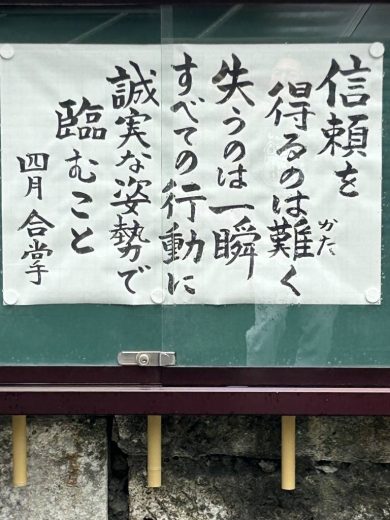 信頼を
得るのは難く
かた
失うのは一瞬
すべての行動に
誠実な姿勢で
臨むこと
四月 合掌